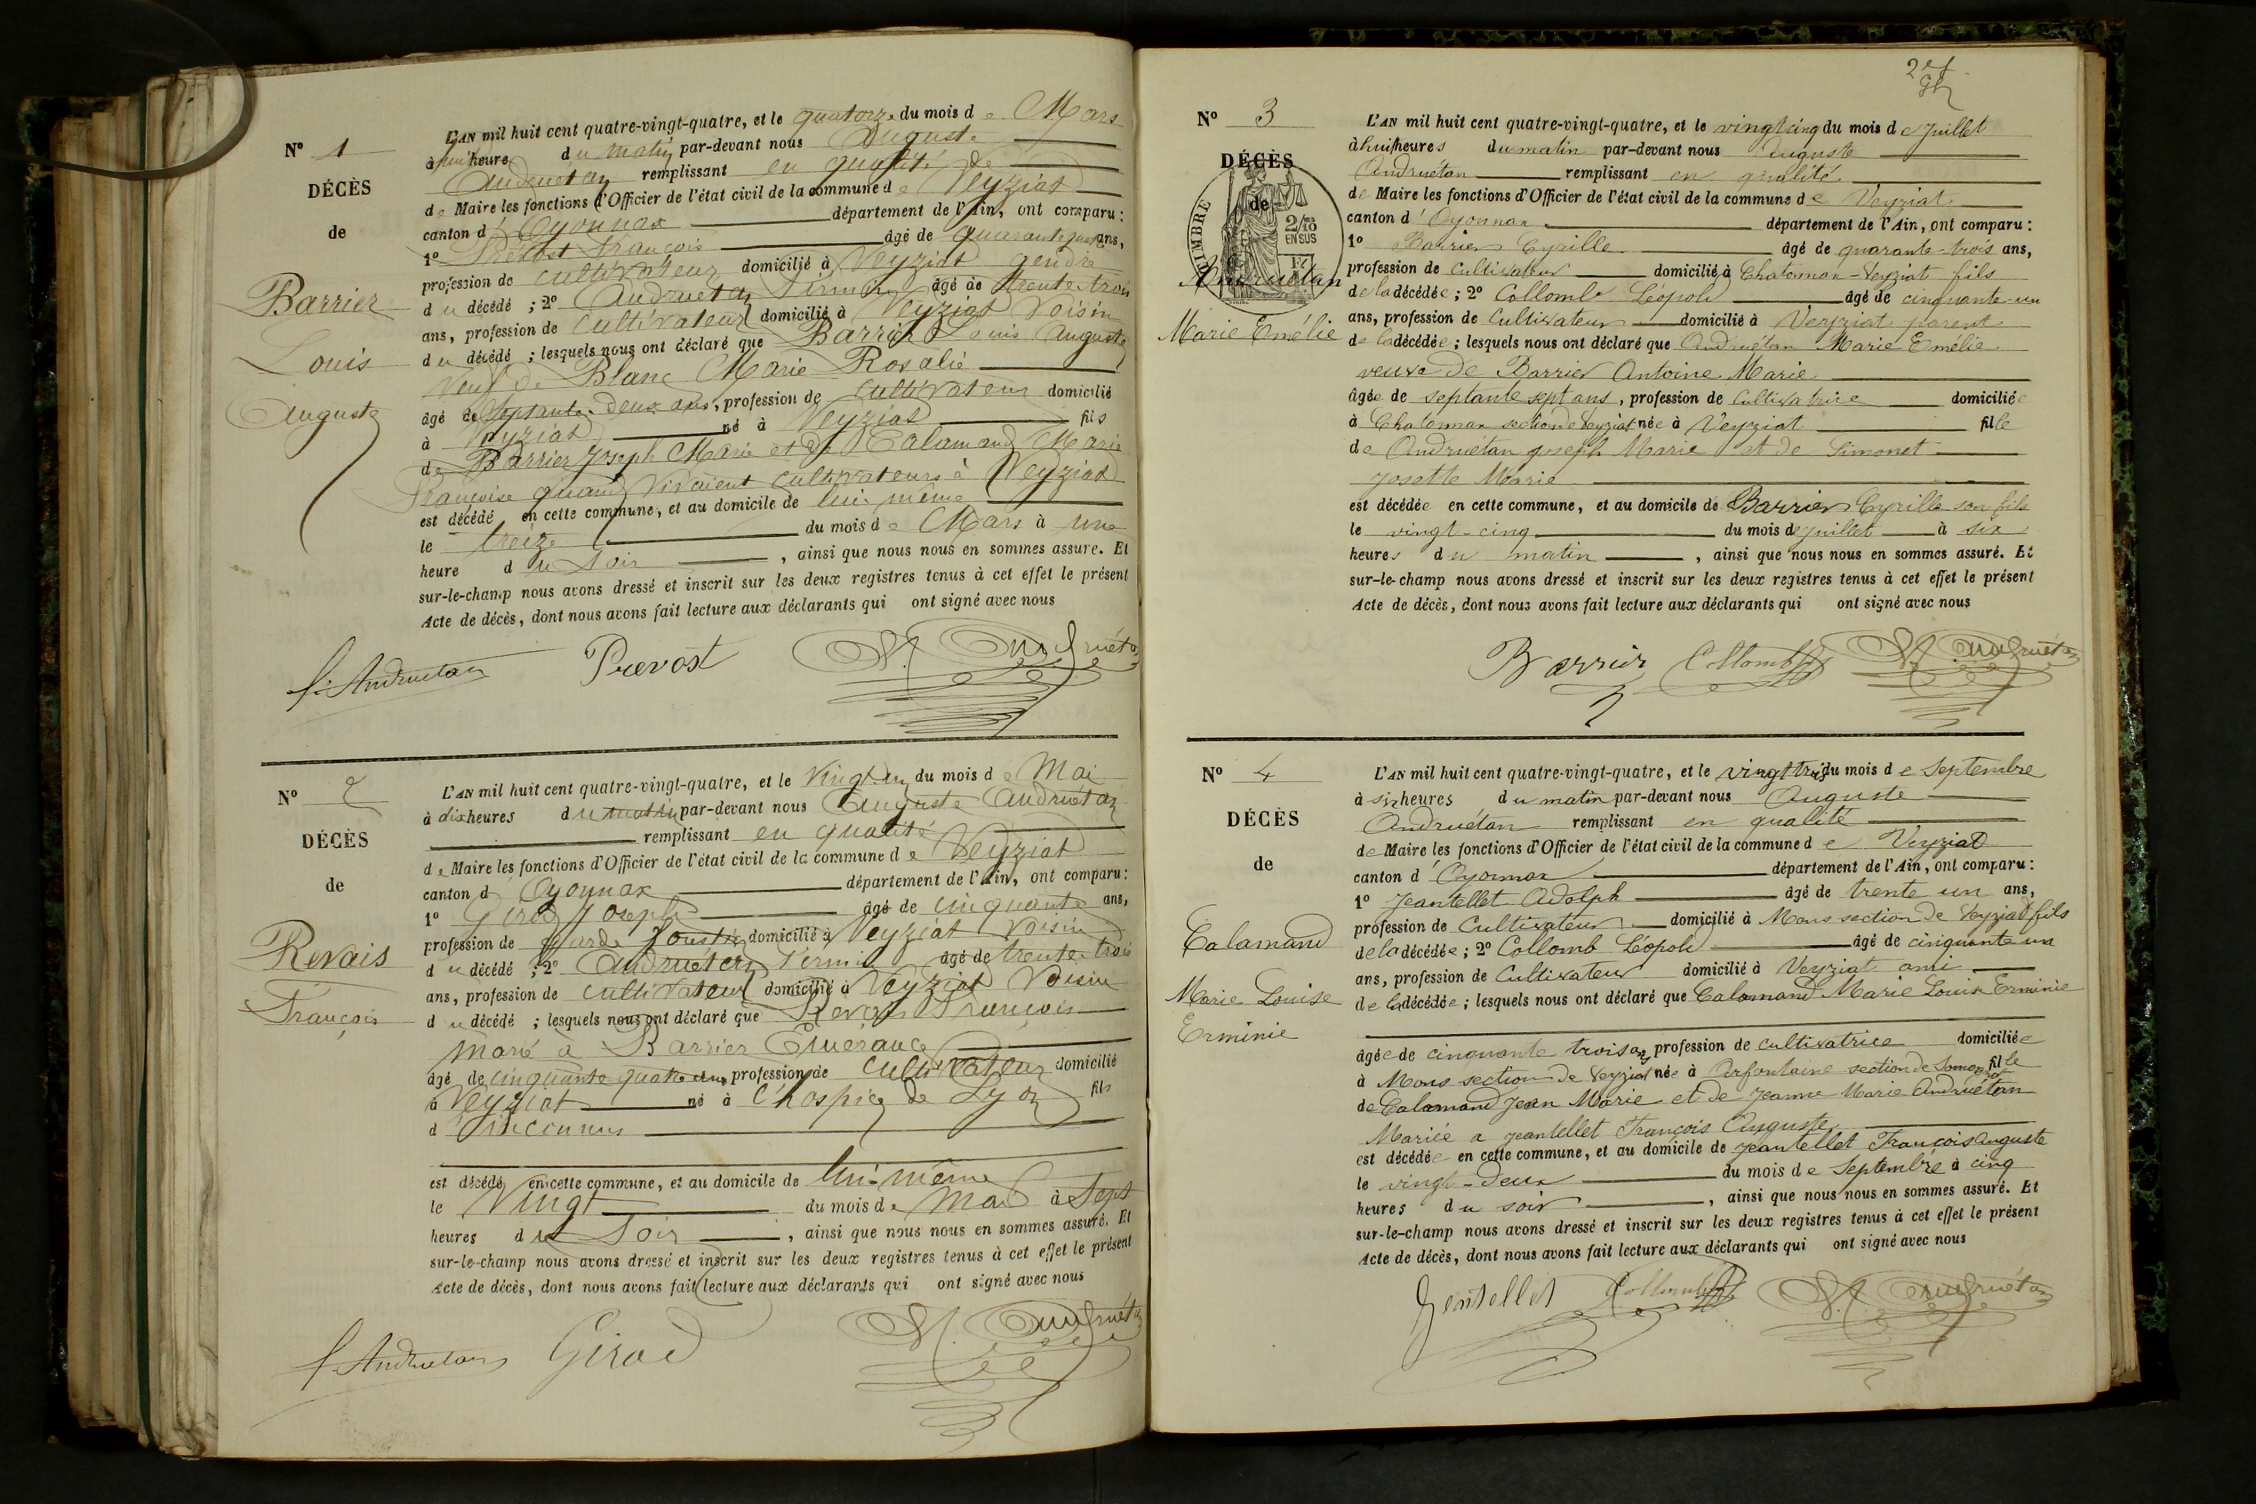 N° 1
DÉCÈS
de
Barrier
Louis
Auguste
L'AN mil huit cent quatre-vingt-quatre, et le quatorze du mois de Mars
à huit heures du matin par-devant nous Auguste
Andruétan remplissant en qualité de
de Maire les fonctions d'Officier de l'état civil de la commune de Veyziat
canton d Oyonnax département de l'Ain, ont comparu :
1° Prévost François âgé de quarante quatre ans,
profession de cultivateur domicilié à Veyziat gendre
du décédé ; 2° Andruetan Firmin âgé de trente-trois
ans, profession de cultivateur domicilié à Veyziat Voisin
du décédé ; lesquels nous ont déclaré que Barrier Louis Auguste
Veuf de Blanc Marie Rosalie
âgé de septante-deux ans, profession de cultivateur domicilié
à Veyziat né à Veyziat fils
de Barrier Joseph Marie et de Calamand Marie
Françoise quand vivaient cultivateurs à Veyziat
est décédé en cette commune, et au domicile de lui-même
le treize du mois de Mars à une
heure du soir , ainsi que nous nous en sommes assuré. Et
sur-le-champ nous avons dressé et inscrit sur les deux registres tenus à cet effet le présent
Acte de décès, dont nous avons fait lecture aux déclarants qui ont signé avec nous
f. Andruetan Prevost A. Andruétan
N° 2
DÉCÈS
de
Revais
François
L'AN mil huit cent quatre-vingt-quatre, et le Vingt un du mois de Mai
à dix heures du matin par-devant nous Auguste Andruetan
remplissant en qualité
de Maire les fonctions d'Officier de l'état civil de la commune de Veyziat
canton d Oyonnax département de l'Ain, ont comparu :
1° Girod Joseph âgé de cinquante ans,
profession de garde foustier domicilié à Veyziat Voisin
du décédé ; 2° Andruetan Firmin âgé de trente-trois
ans, profession de cultivateur domicilié à Veyziat Voisin
du décédé ; lesquels nous ont déclaré que Revais François
marié à Barrier Emerance
âgé de cinquante quatre ans, profession de cultivateur domicilié
à Veyziat né à l'hospice de Lyon fils
d inconnus
est décédé en cette commune, et au domicile de lui-même
le Vingt du mois de Mai à sept
heures du soir , ainsi que nous nous en sommes assuré. Et
sur-le-champ nous avons dressé et inscrit sur les deux registres tenus à cet effet le présent
Acte de décès, dont nous avons fait lecture aux déclarants qui ont signé avec nous
f. Andruetan Girod A. Andruétan
N° 3
DÉCÈS
de
TIMBRE
2/10
EN SUS
Andruétan
Marie Emélie
L'AN mil huit cent quatre-vingt-quatre, et le vingt cinq du mois de Juillet
à huit heures du matin par-devant nous Auguste
Andruétan remplissant en qualité
de Maire les fonctions d'Officier de l'état civil de la commune de Veyziat
canton d'Oyonnax département de l'Ain, ont comparu :
1° Barrier Cyrille âgé de quarante-trois ans,
profession de cultivateur domicilié à Chatonnax-Veyziat fils
de la décédée ; 2° Collomb Léopold âgé de cinquante-un
ans, profession de Cultivateur domicilié à Veyziat parent
de la décédée ; lesquels nous ont déclaré que Andruétan Marie Emélie
veuve de Barrier Antoine Marie
âgée de septante sept ans, profession de Cultivatrice domiciliée
à Chatonnax section de Veyziat née à Veyziat fille
de Andruétan Joseph Marie et de Simonet
Josette Marie
est décédée en cette commune, et au domicile de Barrier Cyrille son fils
le vingt-cinq du mois de Juillet à six
heures du matin , ainsi que nous nous en sommes assuré. Et
sur-le-champ nous avons dressé et inscrit sur les deux registres tenus à cet effet le présent
Acte de décès, dont nous avons fait lecture aux déclarants qui ont signé avec nous
Barrier Collomb A. Andruétan
N° 4
DÉCÈS
de
Calamand
Marie Louise
Erminie
L'AN mil huit cent quatre-vingt-quatre, et le vingt trois du mois de Septembre
à six heures du matin par-devant nous Auguste
Andruétan remplissant en qualité
de Maire les fonctions d'Officier de l'état civil de la commune de Veyziat
canton d'Oyonnax département de l'Ain, ont comparu :
1° Jeantellet Adolph âgé de trente un ans,
profession de Cultivateur domicilié à Mons section de Veyziat fils
de la décédée ; 2° Collomb Léopold âgé de cinquante un
ans, profession de Cultivateur domicilié à Veyziat ami
de la décédée ; lesquels nous ont déclaré que Calamand Marie Louise Erminie
âgée de cinquante trois ans, profession de cultivatrice domiciliée
à Mons section de Veyziat née à Arfontaine section de fille
de Calamand Jean Marie et de Jeanne Marie Andruétan
Mariée a Jeantellet François Auguste
est décédée en cette commune, et au domicile de Jeantellet François Auguste
le vingt-deux du mois de Septembre à cinq
heures du soir , ainsi que nous nous en sommes assuré. Et
sur-le-champ nous avons dressé et inscrit sur les deux registres tenus à cet effet le présent
Acte de décès, dont nous avons fait lecture aux déclarants qui ont signé avec nous
Jeantellet Collomb A. Andruétan